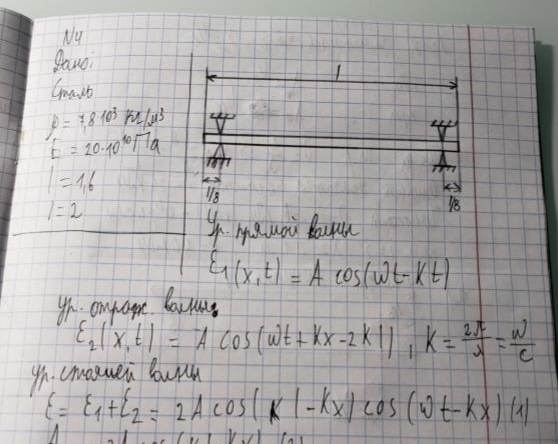 N4
Дано:
Сталь
ρ = 7,8·10³ кг/м³
E = 20·10¹⁰ Па
l = 1,6
l = 2
l
l/8
l/8
Ур. прямой волны
ξ₁(x,t) = A cos(ωt - Kt)
ур. отраж. волны:
ξ₂(x,t) = A cos(ωt + Kx - 2Kl), K = 2π/λ = ω/c
ур. стоячей волны
ξ = ξ₁ + ξ₂ = 2A cos(Kl - Kx) cos(ωt - Kx) (1)